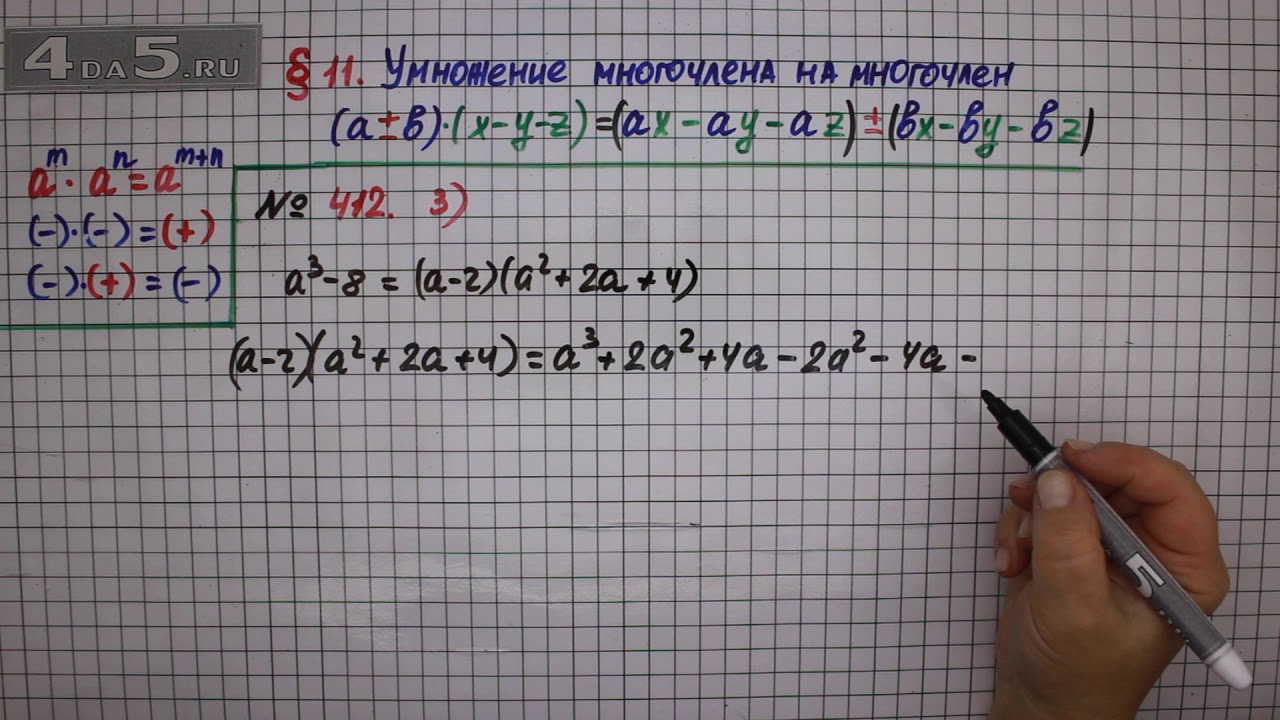 4DA5.RU
§ 11. Умножение многочлена на многочлен
(a±b)·(x-y-z)=(ax-ay-az)±(bx-by-bz)
a^m · a^n = a^(m+n)
(-)·(-)=(+)
(-)·(+)=(-)
№ 412. 3)
a³-8 = (a-2)(a²+2a+4)
(a-2)(a²+2a+4)=a³+2a²+4a-2a²-4a-
5